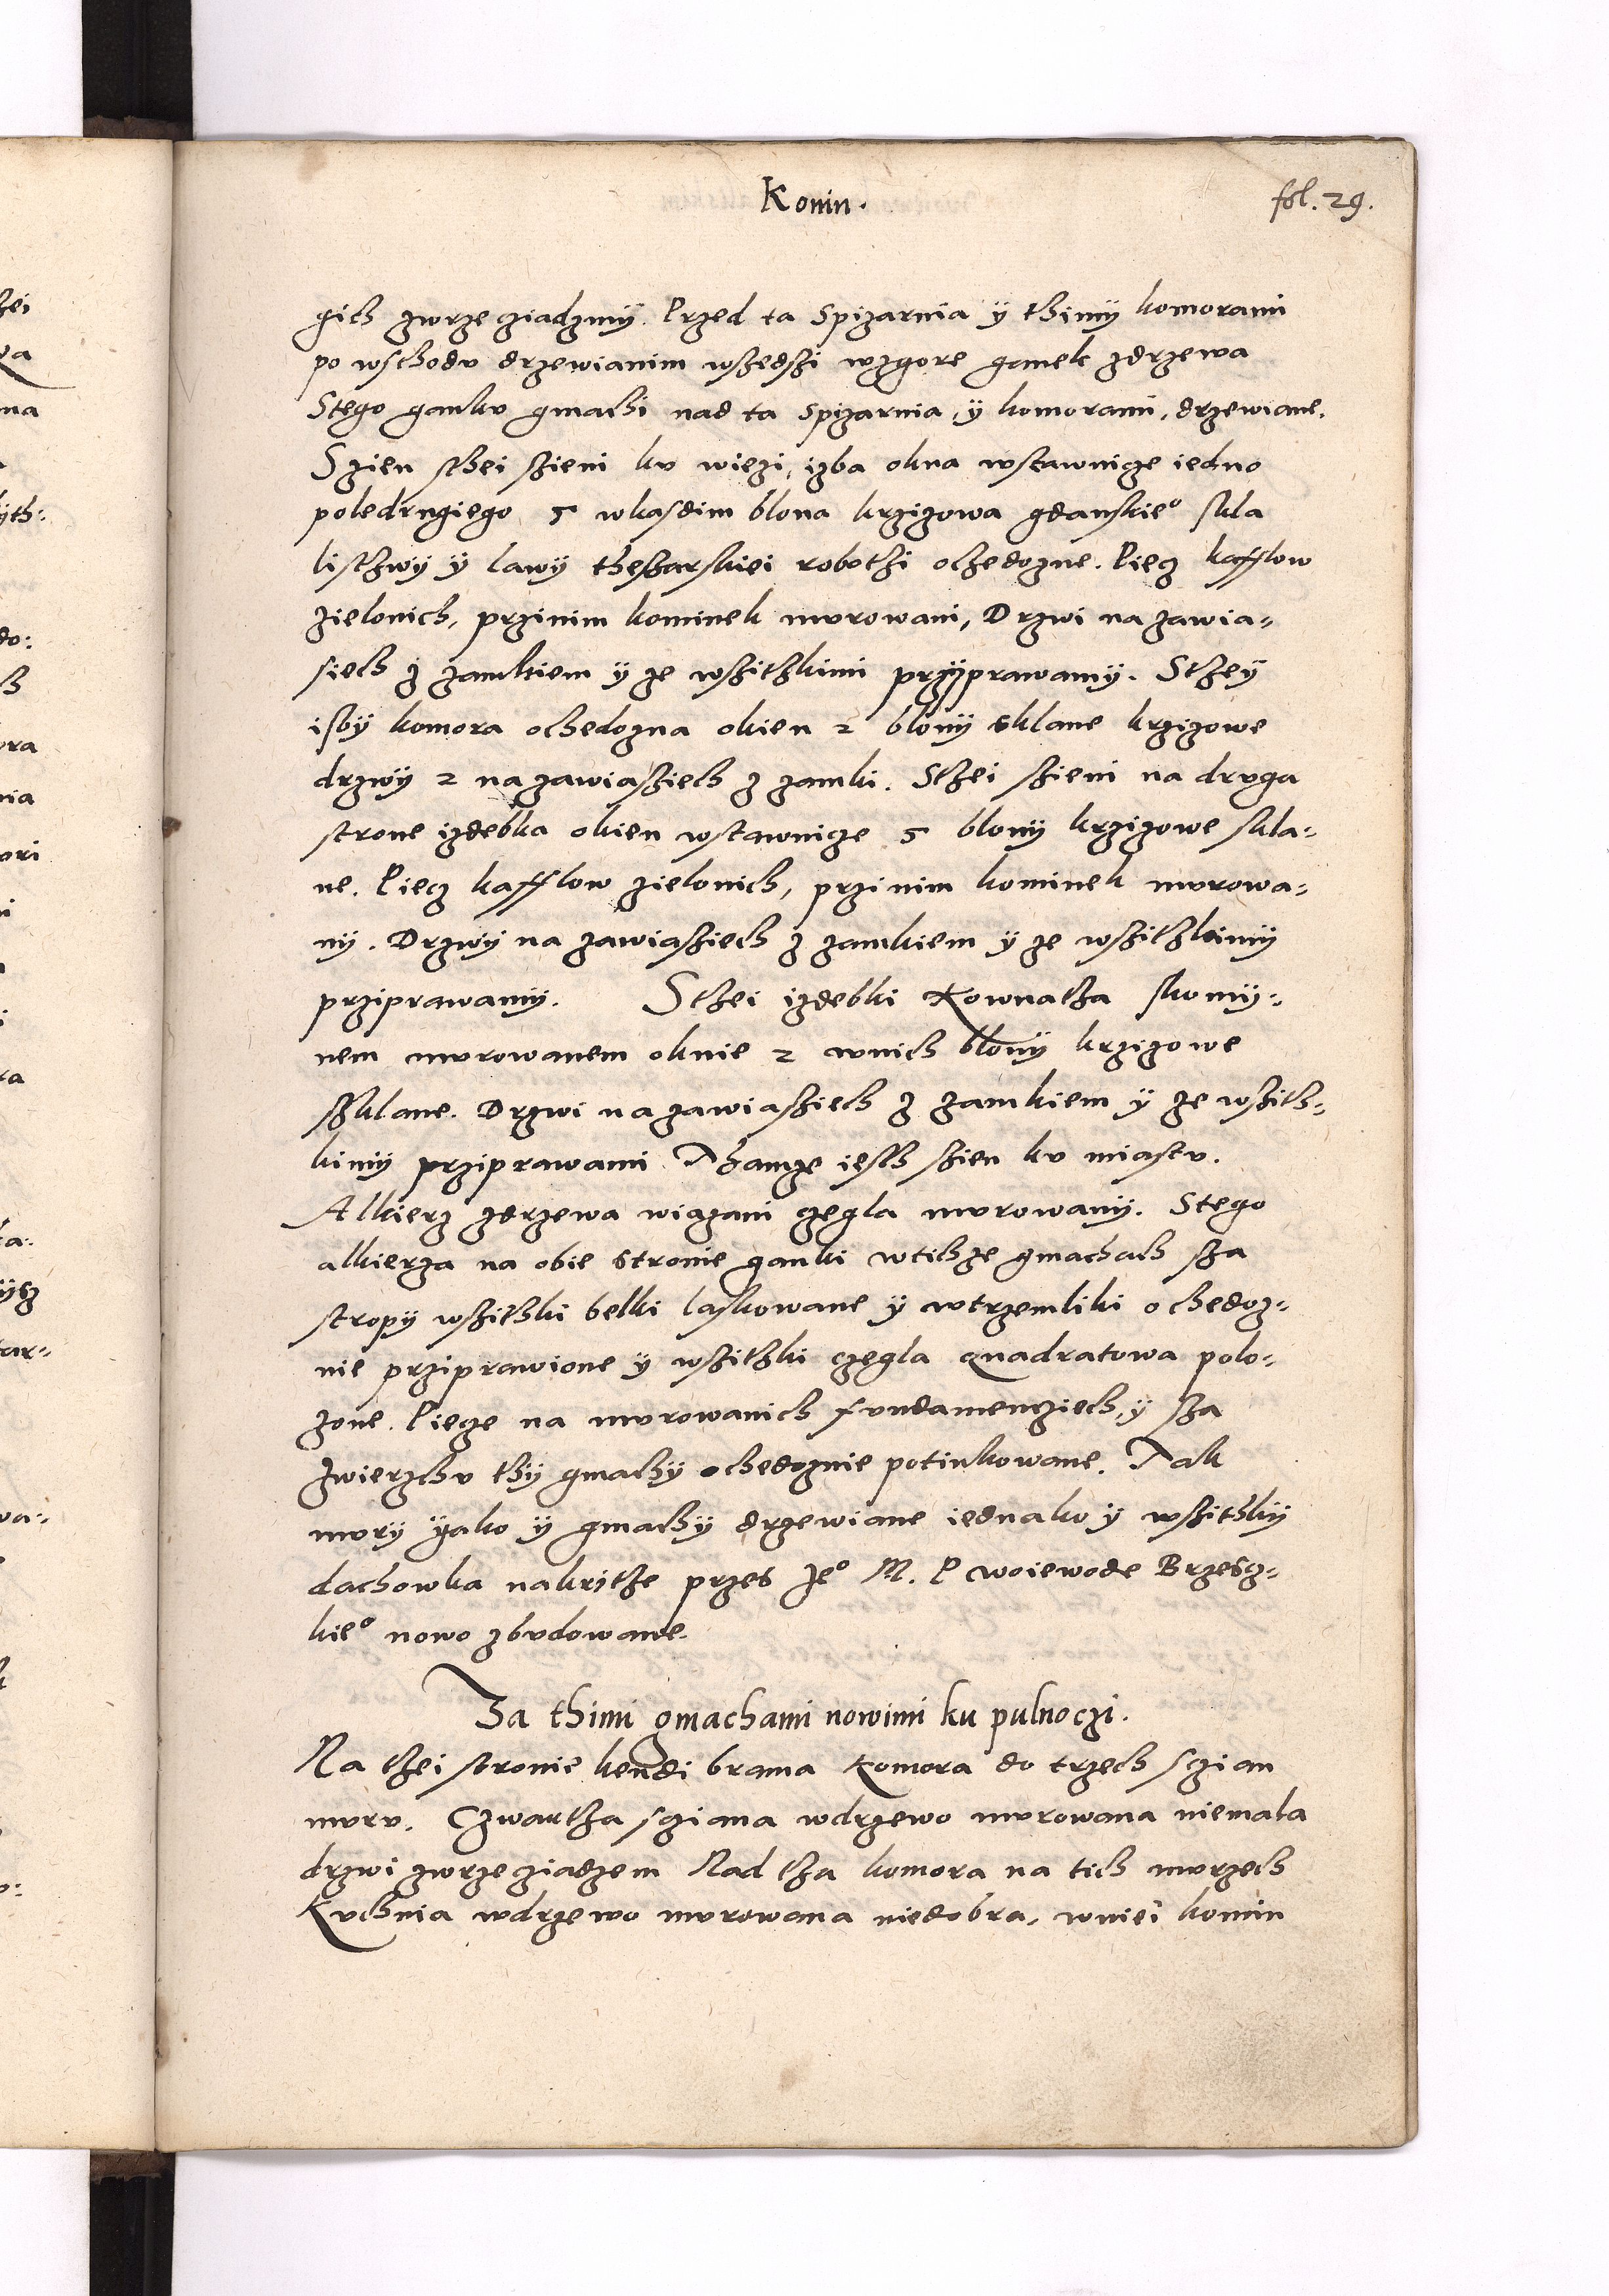 Konin.
fol. 29.
gich zwrzecziadzmÿ. Przed ta Spizarnia ÿ thimÿ komorami
po wschodv drzewianim wszedszi wzgore ganek zdrzewa
Stego gankv gmachi nad ta spizarnia, ÿ komorami, drzewiane.
Szien sthei szieni kv wiezi, izba okna wstawnicze iedno
poledrugiego 5 wkasdim blona krzizowa gdanskie° skla
listhwÿ ÿ lawÿ thesharskiei robothi ochedozne. Piecz kafflow
zielonich, przinim kominek mvrowani, Drzwi na zawia-
siech z zamkiem ÿ ze wszithkimi przÿprawamÿ. Sthey
isbÿ komora ochedozna okien 2 blonÿ sklane krzizowe
drzwÿ 2 na zawiasziech z zamki. Sthei szieni na drvga
strone izdebka okien wstawnicze 5 blonÿ krzizowe skla-
ne. Piecz kafflow zielonich, przinim kominek mvrowa-
nÿ. Drzwÿ na zawiasziech z zamkiem ÿ ze wszithkimÿ
prziprawamÿ. Sthei izdebki Kownatha skomÿ-
nem mvrowanem oknie 2 wnich blonÿ krzizowe
szklane. Drzwi na zawiasziech z zamkiem ÿ ze wszith-
kimÿ prziprawami Thamze iesth szien kv miastv.
Alkierz zdrzewa wiazani czegla mvrowanÿ. Stego
alkierza na obie stronie ganki wtichze gmachach sza
stropÿ wszithki belki laskowane ÿ wtrzemliki ochedoz-
nie prziprawione ÿ wszithki czegla quadratowa polo-
zone. Piecze na mvrowanich fvndamencziech, ÿ sza
zwierzchv thÿ gmachÿ ochedoznie potinkowane. Tak
mvrÿ ÿako ÿ gmachÿ drzewiane iednako ÿ wszithkÿ
dachowka nakrithe przes Je° M. P woiewode Brzescz-
kie° nowo zbvdowane.
Za thimi gmachami nowimi ku pulnoczi.
Na thei stronie kendi brama Komora do trzech sczian
mvrv. Czwartha sciana wdrzewo mvrowana niemala
drzwi zwrzecziadzem Nad tha komora na tich mvrzech
Kvchnia wdrzewo mvrowana niedobra, wniei komin